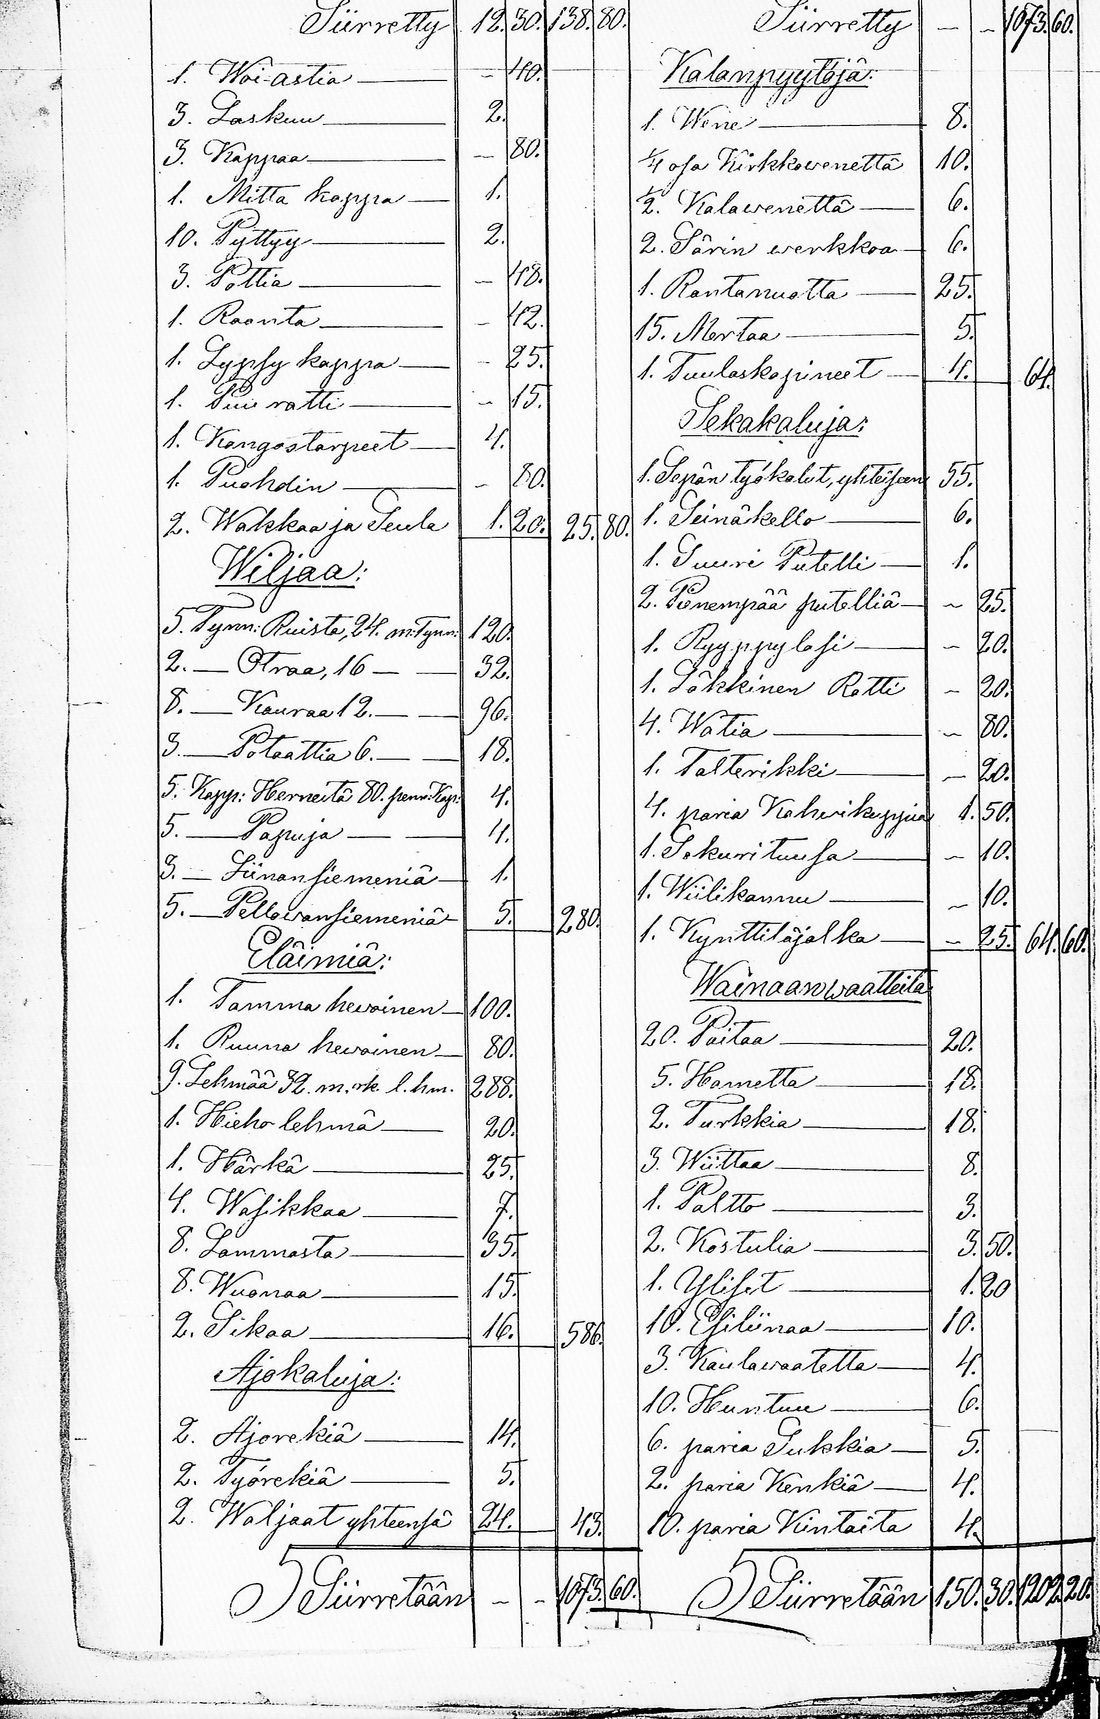 Siirretty 12. 30. 138. 80.
1. Woi-astia — - 40.
3. Laskuu — 2.
3. Kappaa — - 80.
1. Mitta kappa — 1.
10. Pyttyy — 2.
3. Pottia — - 48.
1. Raanta — - 42.
1. Lypsy kappa — - 25.
1. Puu ratti — - 15.
1. Kangastarpeet — 4.
1. Puohdin — - 80.
2. Wakkaa ja Seula 1. 20. 25. 80.
Wiljaa:
5. Tynn: Ruista, 24. m: Tynn: 120.
2. — Otraa, 16 — — 32.
8. — Kauraa 12. — — 96.
3. — Potaattia 6. — — 18.
5. Kapp: Herneitä 80. penn: Kap: 4.
5. — Papuja — — 4.
3. — Liinansiemeniä — 1.
5. — Pellavansiemeniä — 5. 280.
Eläimiä:
1. Tamma hevoinen — 100.
1. Ruuna hevoinen — 80.
9. Lehmää 32. m.rk. l.hm. 288.
1. Hieho lehmä — 20.
1. Härkä — 25.
4. Wasikkaa — 7.
8. Lammasta — 35.
8. Wuonaa — 15.
2. Sikaa — 16. 586.
Ajokaluja:
2. Ajorekiä — 14.
2. Työrekiä — 5.
2. Waljaat yhteensä 24. 43.
Siirretään - - 1073. 60.
Siirretty - - 1073. 60.
Kalanpyytöjä:
1. Wene — 8.
1/4 osa Kirkkovenettä 10.
1/2. Kalavenettä — 6.
2. Särin verkkoa — 6.
1. Rantanuotta — 25.
15. Mertaa — 5.
1. Tuulaskapineet — 4. 64.
Sekakaluja:
1. Sepän työkalut, yhteiseen 55.
1. Seinäkello — 6.
1. Suuri Putelli — 1.
2. Pienempää putelliä — - 25.
1. Ryyppylasi — - 20.
1. Läkkinen Ratti - 20.
4. Watia — - 80.
1. Talterikki — - 20.
4. paria Kahvikuppia 1. 50.
1. Sokurituusa — - 10.
1. Wiilikannu — - 10.
1. Kynttiläjalka — - 25. 64. 60.
Wainaanwaatteita
20. Paitaa — 20.
5. Hametta — 18.
2. Turkkia — 18.
3. Wiittaa — 8.
1. Paltto — 3.
2. Kostulia — 3. 50.
1. Yliset — 1. 20
10. Esiliinaa — 10.
3. Kaulavaatetta — 4.
10. Huntuu — 6.
6. paria Sukkia — 5.
2. paria Kenkiä — 4.
10. paria Kintaita 4.
Siirretään 150. 30. 1202. 20.